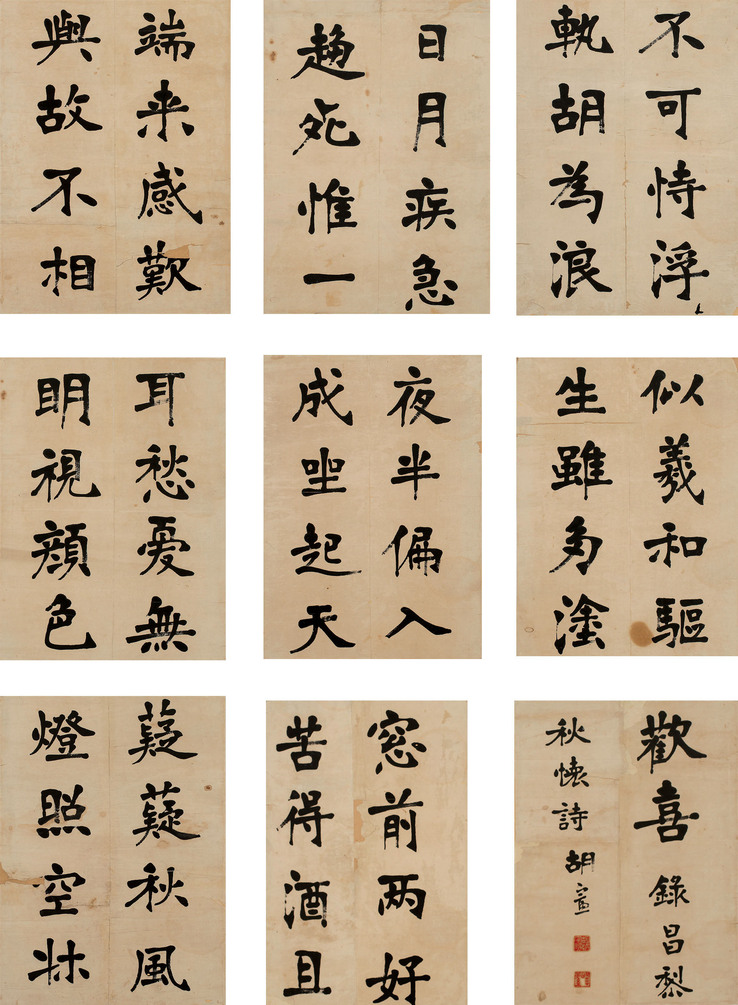 不可恃浮
軌胡為浪
日月疾急
趍死惟一
端来感歎
與故不相
似羲和驅
生雖多塗
夜半偏入
成坐起天
耳愁憂無
明視顏色
歡喜 錄昌黎
秋懷詩 胡
窓前两好
苦得酒且
薿薿秋風
燈照空牀